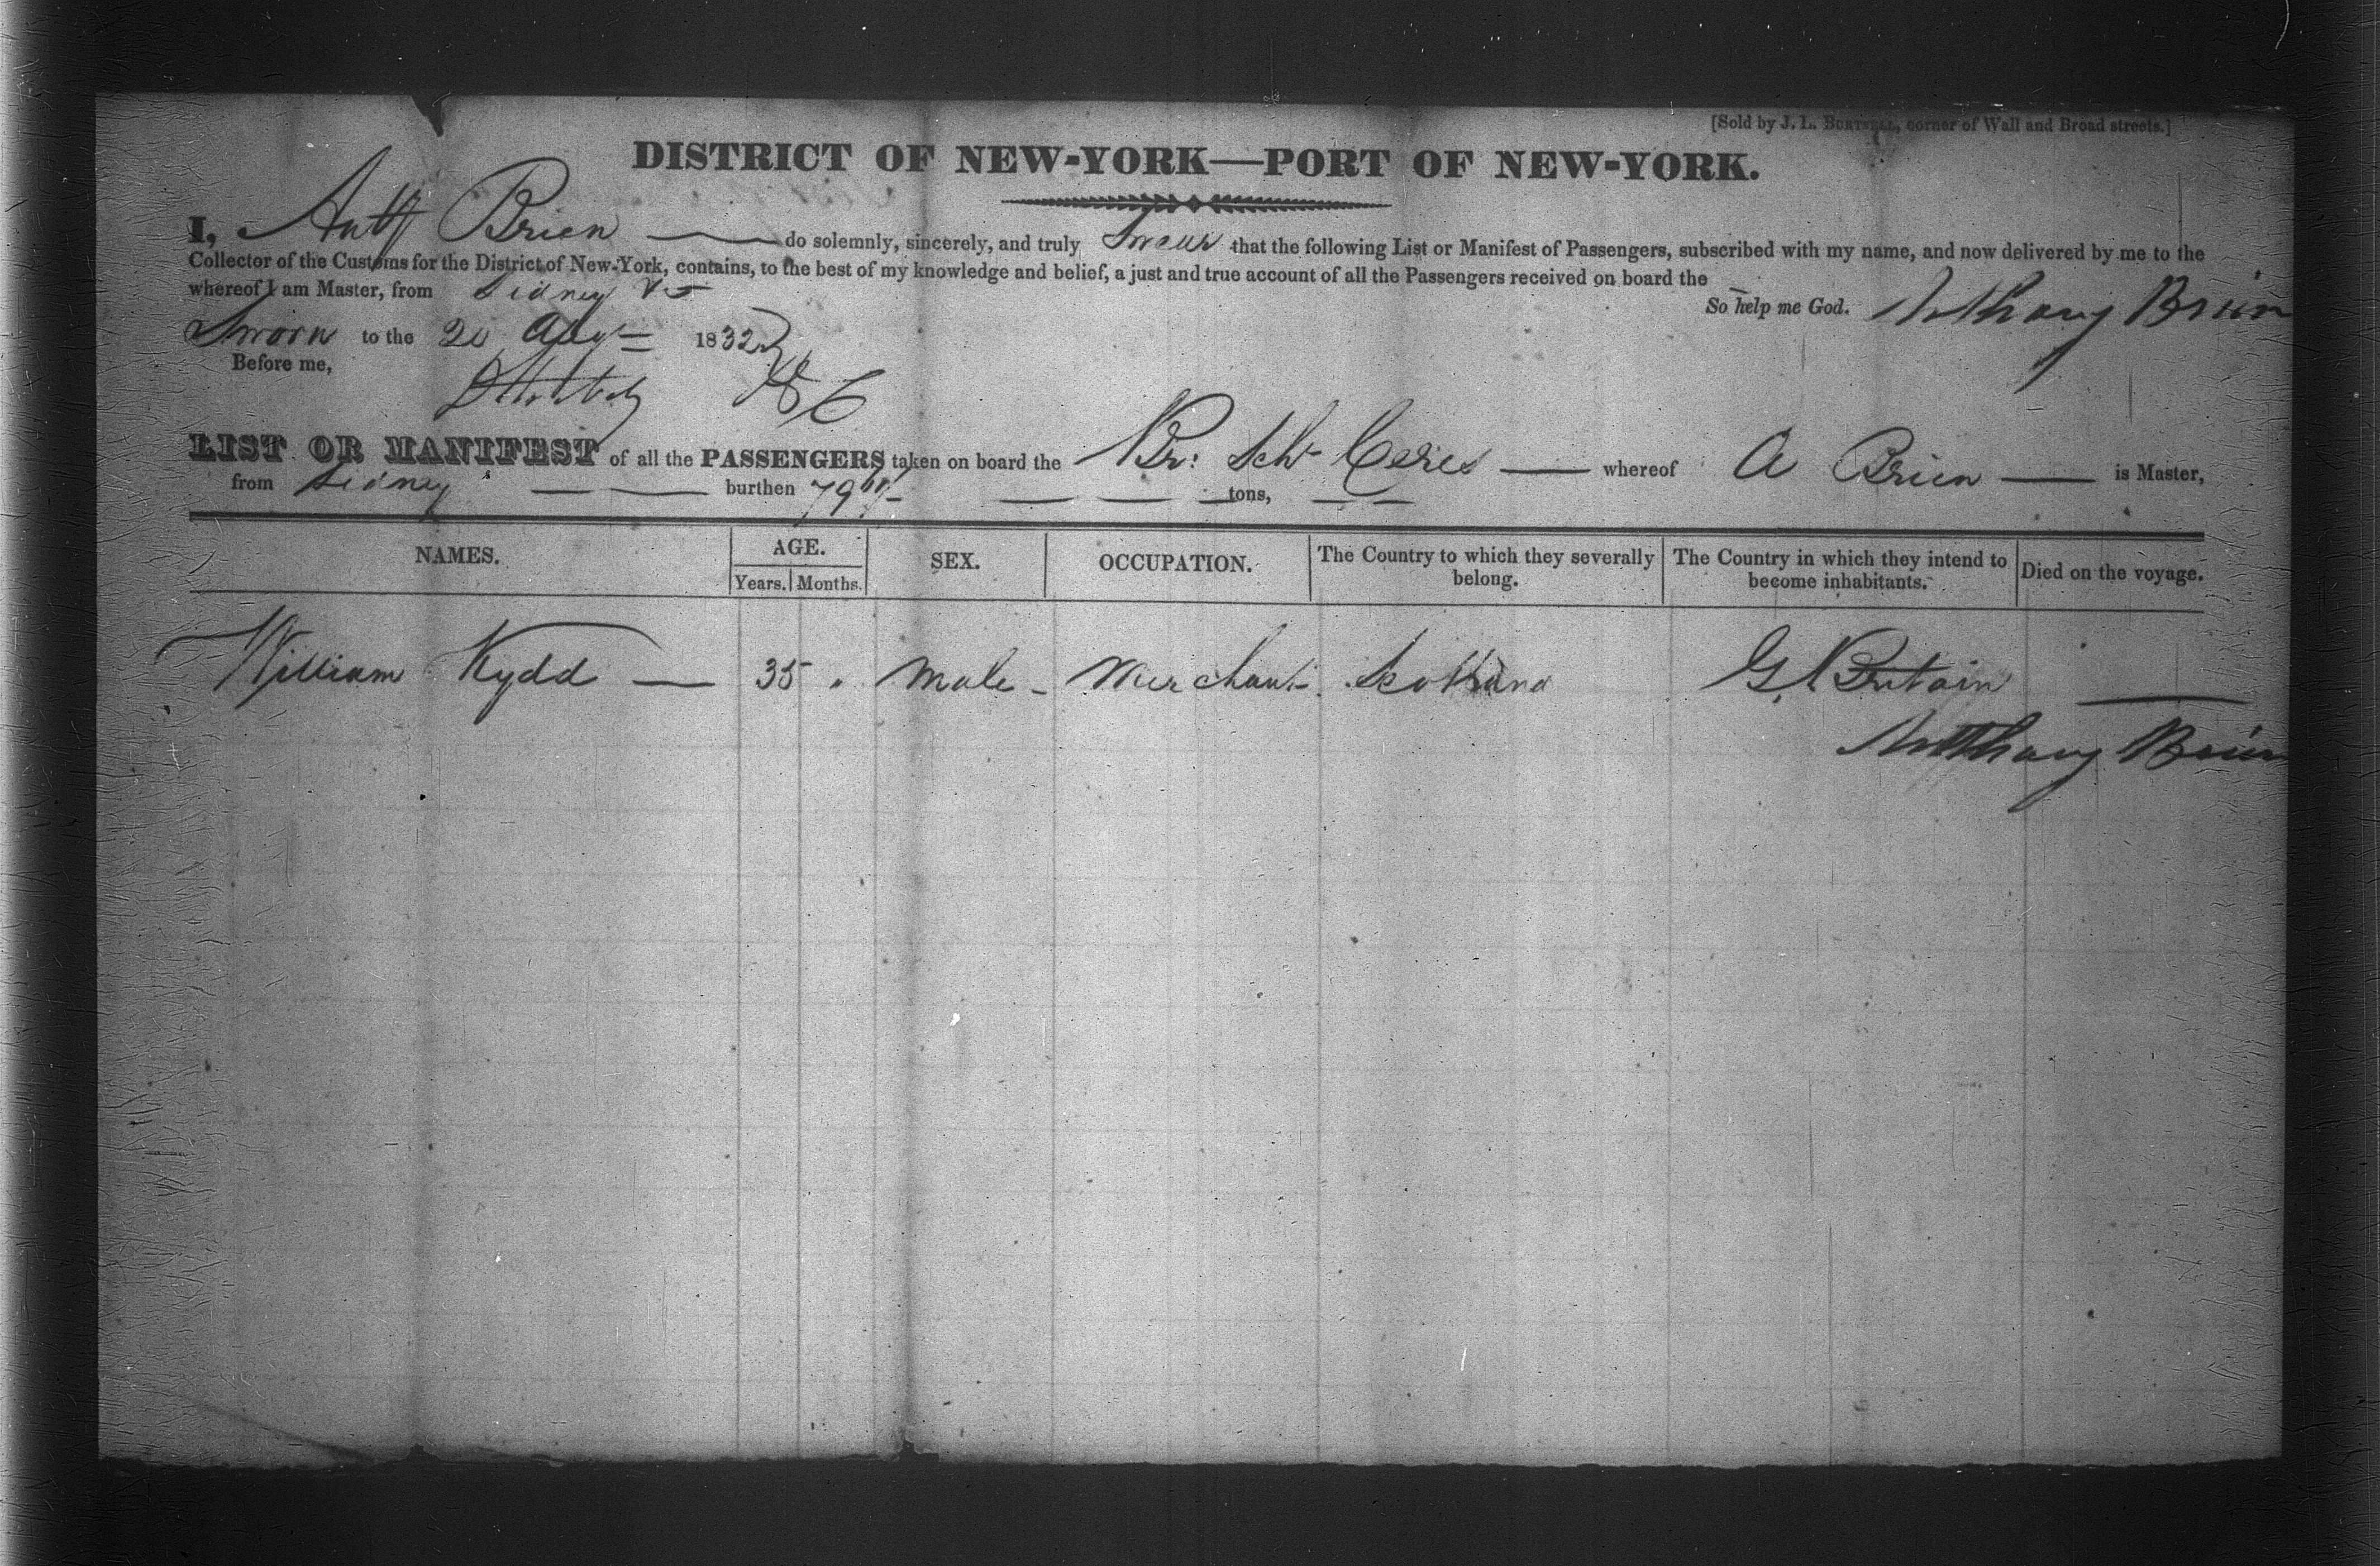 [Sold by J. L. BURTNELL, corner of Wall and Broad streets.]
DISTRICT OF NEW-YORK—PORT OF NEW-YORK.
I, Anty Brien — do solemnly, sincerely, and truly Swear that the following List or Manifest of Passengers, subscribed with my name, and now delivered by me to the
Collector of the Customs for the District of New-York, contains, to the best of my knowledge and belief, a just and true account of all the Passengers received on board the
whereof I am Master, from Sidney
So help me God. Anthony Brien
Sworn to the 20 Augt 1832
Before me,
LIST OR MANIFEST of all the PASSENGERS taken on board the Br: Schr Ceres — whereof A Brien — is Master,
from Sidney — — burthen 79 — — — tons, — —
NAMES. AGE. SEX. OCCUPATION. The Country to which they severally belong. The Country in which they intend to become inhabitants. Died on the voyage.
Years. Months.
William Kydd — 35 " Male - Merchant Scotland G. Britain —
Anthony Brien